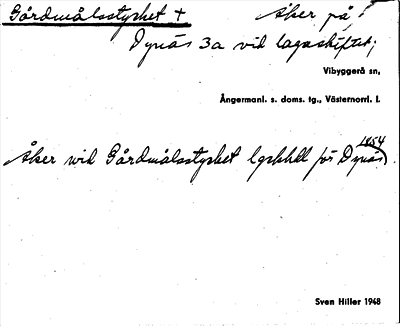 Gårdmålsstycket + Åker på
Dynäs 3a vid lagaskiftet;
Vibyggerå sn,
Ångermanl. s. doms. tg., Västernorrl. l.
1854
Åker wid Gårdmålsstycket lgskhdl för Dynäs.
Sven Hiller 1948